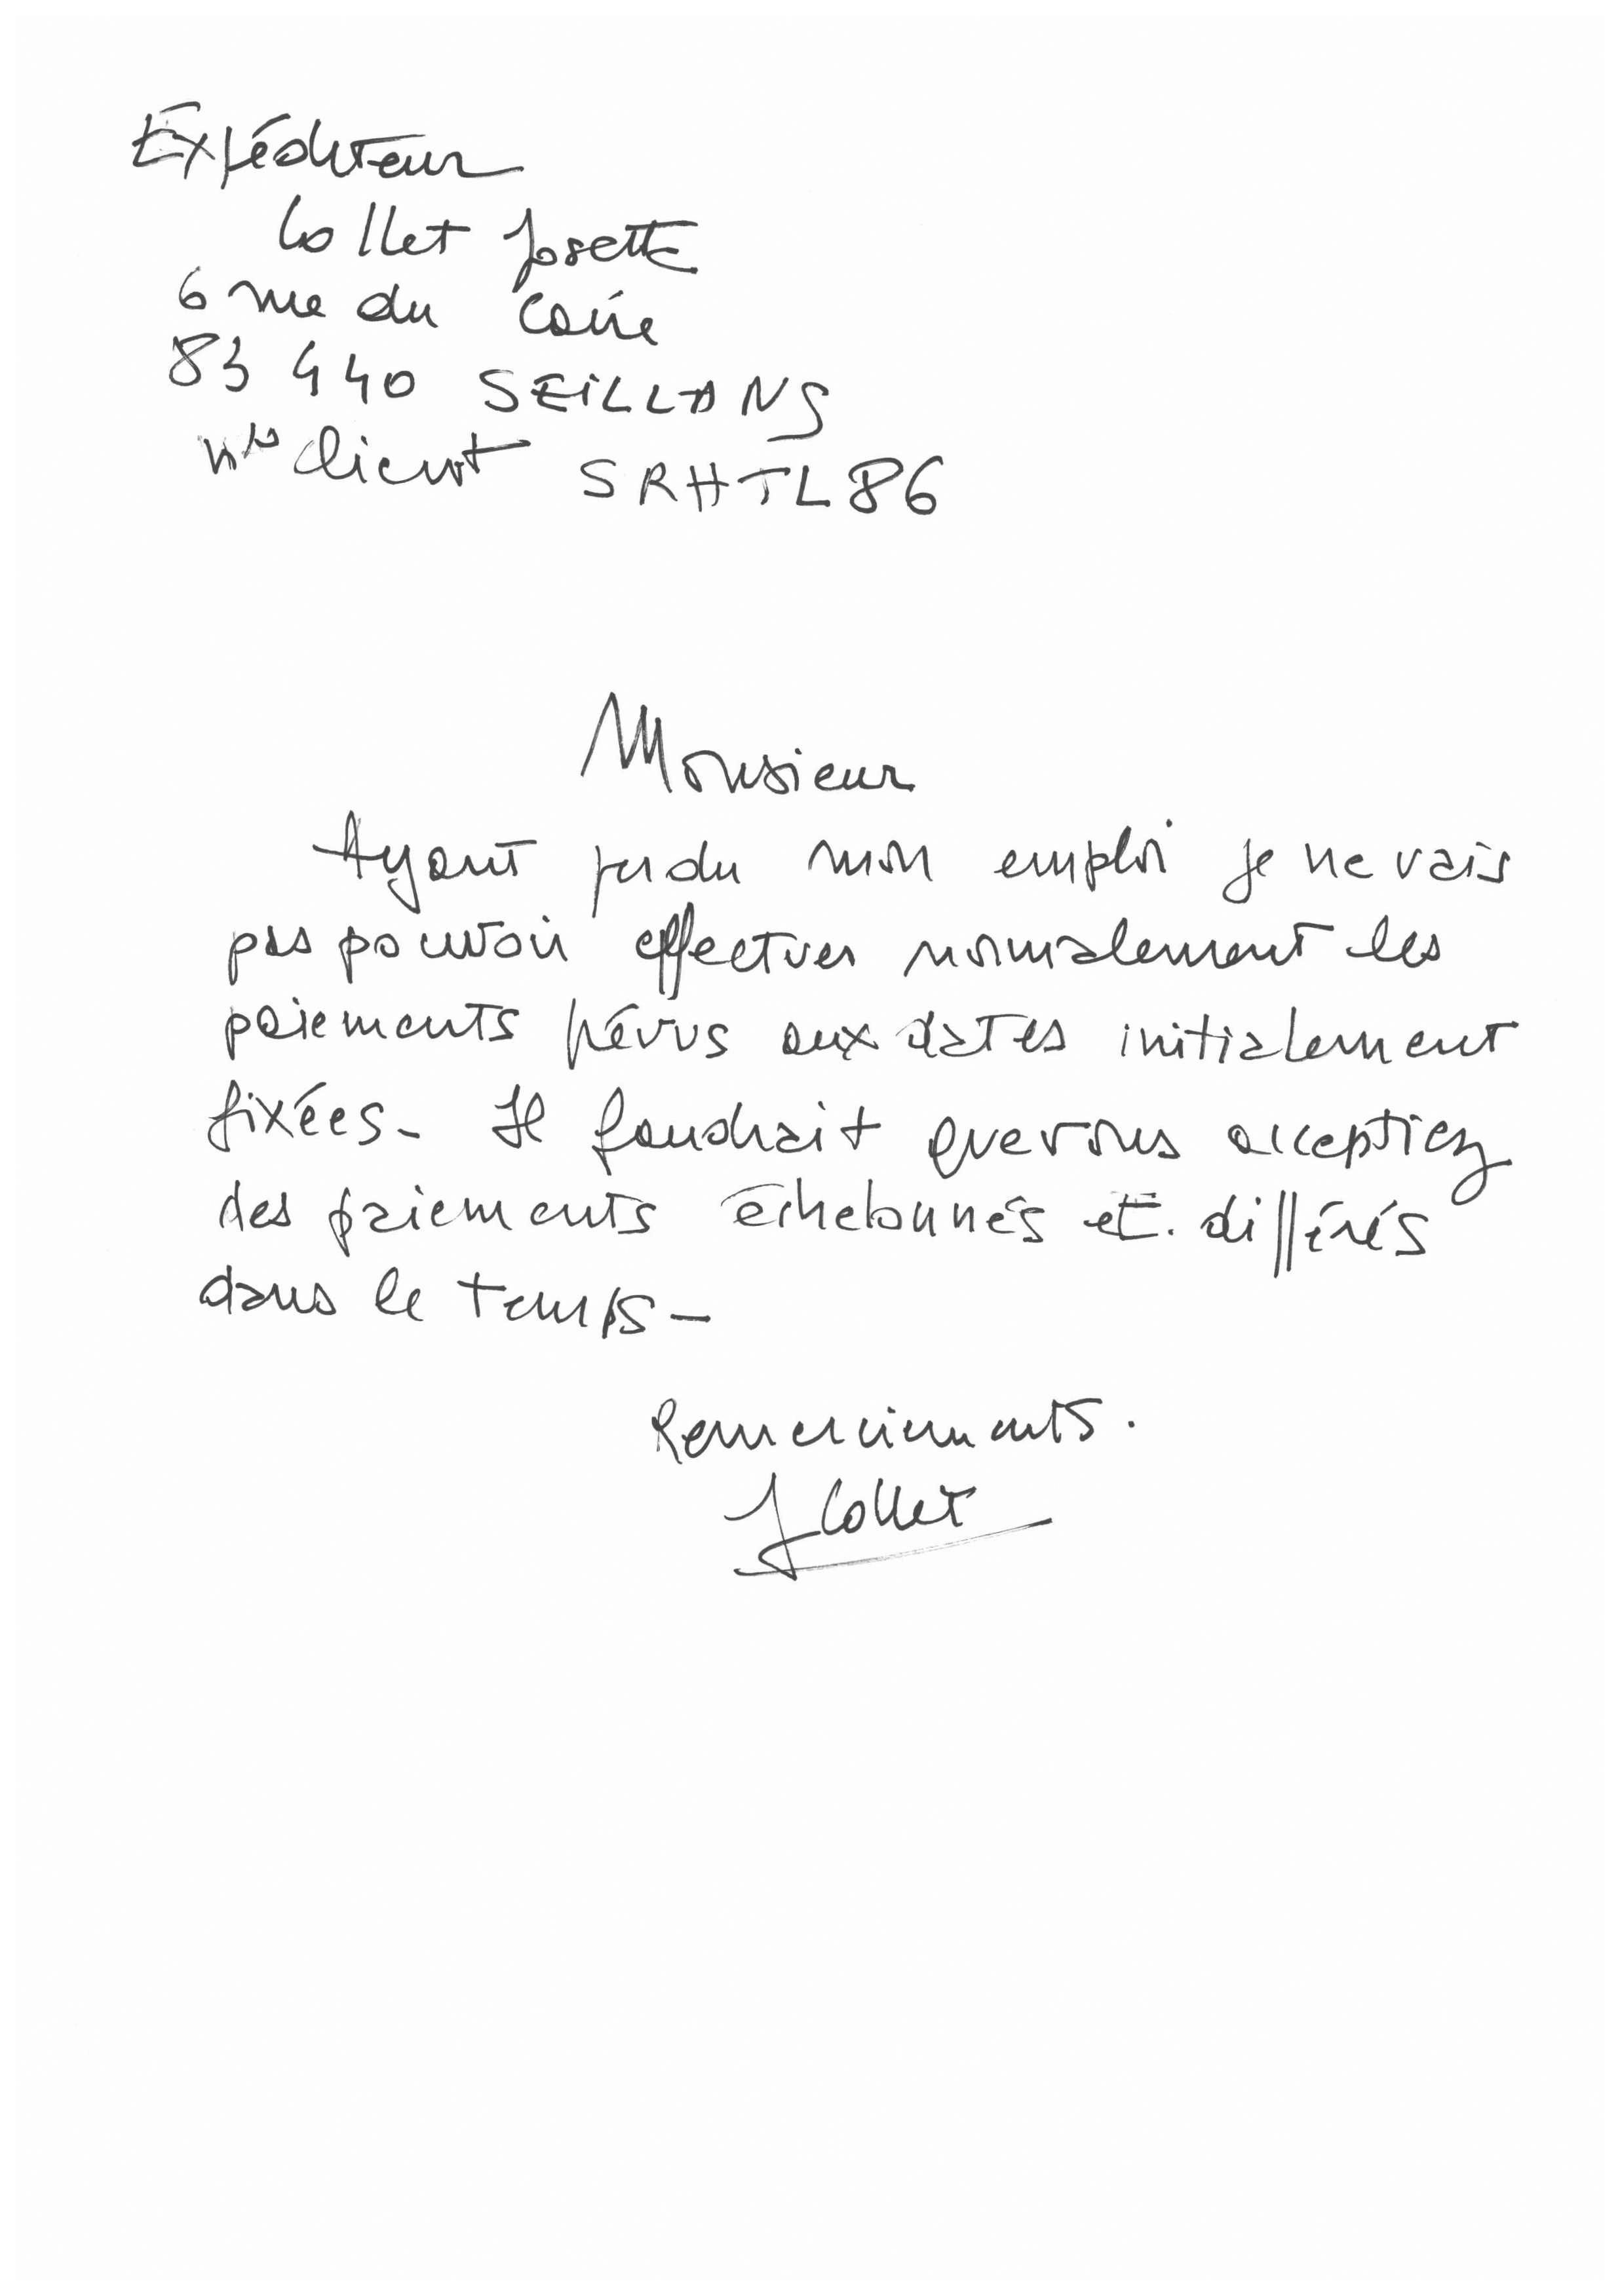 Expéditeur
Collet Josette
6 rue du Caire
83 440 SEILLANS
No Client SRHTL86
Monsieur
Ayant perdu mon emploi je ne vais
pas pouvoir effectuer normalement les
paiements prévus aux dates initialement
fixées- Il faudrait que vous acceptiez
des paiements échelonnés et différés
dans le temps-
Remerciements.
J Collet